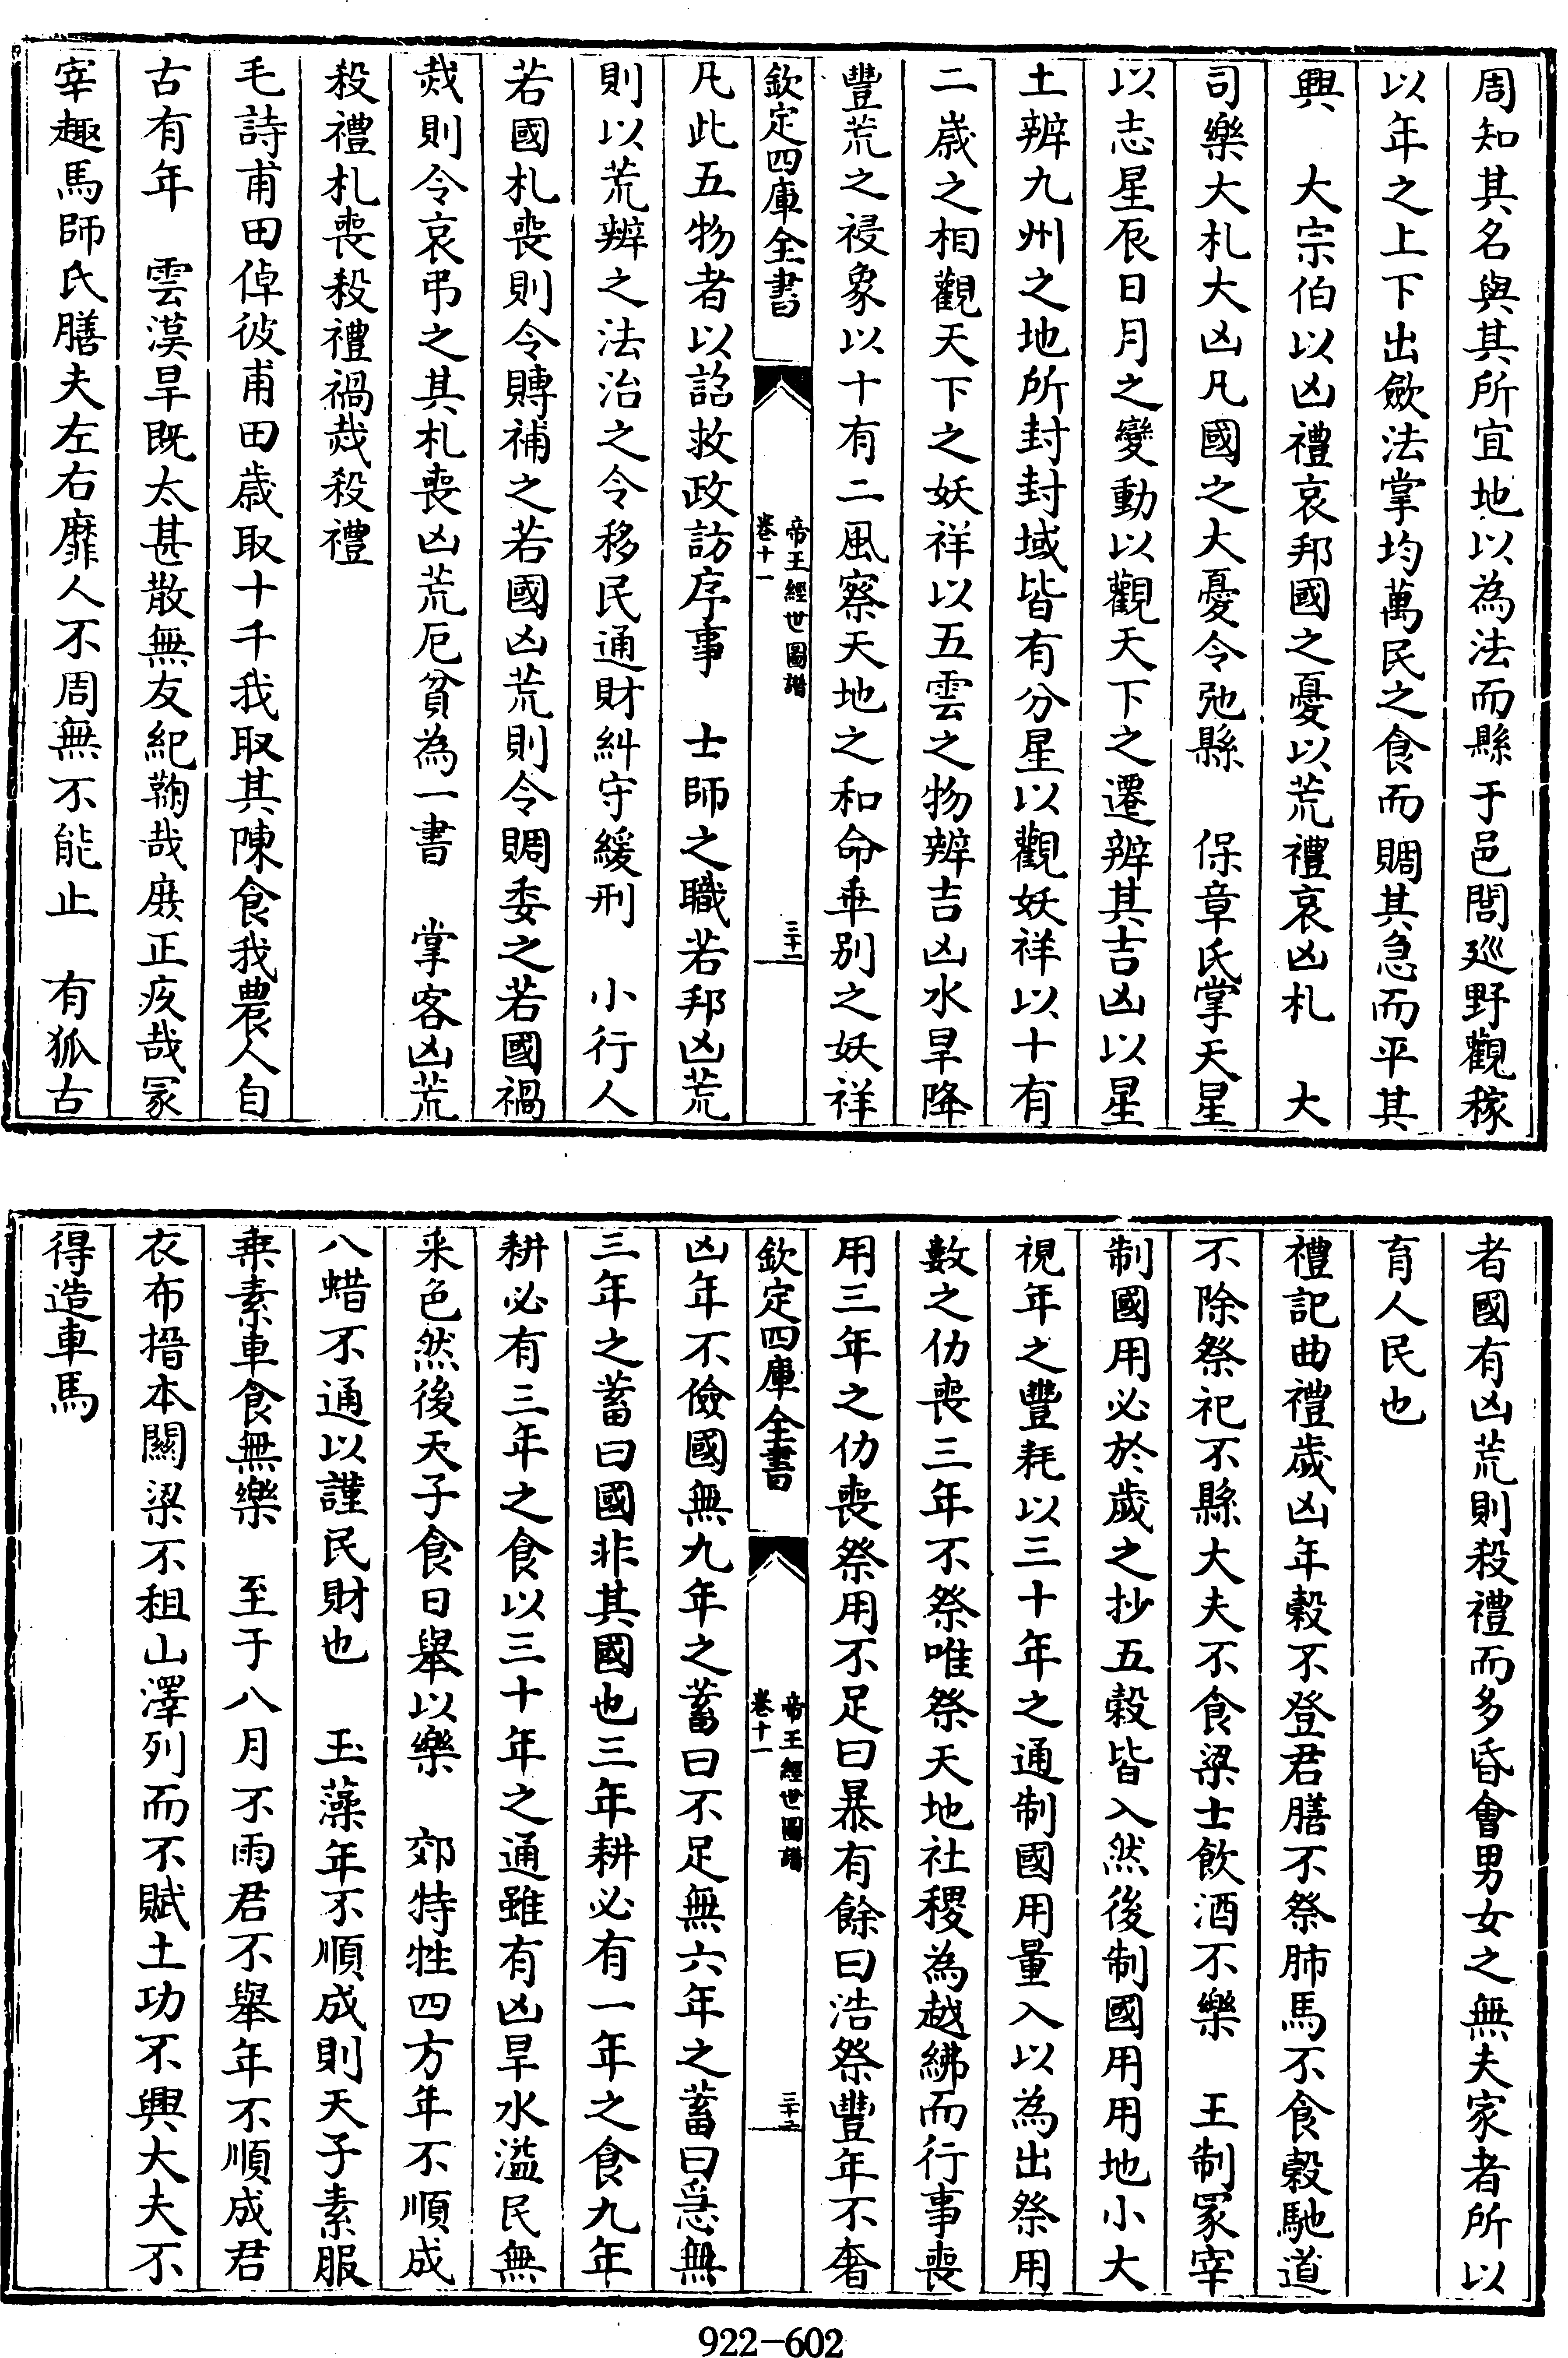 周知其名與其所宜地以為法而縣于邑閭廵野觀稼
以年之上下出歛法掌均萬民之食而賙其急而平其
興　大宗伯以凶禮哀邦國之憂以荒禮哀凶札　大
司樂大札大凶凡國之大憂令弛縣　保章氏掌天星
以志星辰日月之變動以觀天下之遷辨其吉凶以星
土辨九州之地所封封域皆有分星以觀妖祥以十有
二嵗之相觀天下之妖祥以五雲之物辨吉凶水旱降
豐荒之祲象以十有二風察天地之和命乖别之妖祥
欽定四庫全書
帝王經世圖譜
卷十一
三十一
凡此五物者以詔救政訪序事　士師之職若邦凶荒
則以荒辨之法治之令移民通財糾守緩刑　小行人
若國札喪則令賻補之若國凶荒則令賙委之若國禍
烖則令哀弔之其札喪凶荒厄貧為一書　掌客凶荒
殺禮札喪殺禮禍烖殺禮
毛詩甫田倬彼甫田歳取十千我取其陳食我農人自
古有年　雲漢旱既太甚散無友紀鞫哉庻正疚哉冡
宰趣馬師氏膳夫左右靡人不周無不能止　有狐古
者國有凶荒則殺禮而多昏會男女之無夫家者所以
育人民也
禮記曲禮歲凶年穀不登君膳不祭肺馬不食穀馳道
不除祭祀不縣大夫不食梁士飲酒不樂　王制冢宰
制國用必於歲之抄五穀皆入然後制國用用地小大
視年之豐耗以三十年之通制國用量入以為出祭用
數之仂喪三年不祭唯祭天地社稷為越紼而行事喪
用三年之仂喪祭用不足曰暴有餘曰浩祭豐年不奢
欽定四庫全書
帝王經世圖譜
卷十一
三十二
凶年不儉國無九年之蓄曰不足無六年之蓄曰急無
三年之蓄曰國非其國也三年耕必有一年之食九年
耕必有三年之食以三十年之通雖有凶旱水溢民無
采色然後天子食日舉以樂　郊特牲四方年不順成
八蜡不通以謹民財也　玉藻年不順成則天子素服
乗素車食無樂　至于八月不雨君不舉年不順成君
衣布搢本關梁不租山澤列而不賦土功不興大夫不
得造車馬
922-602